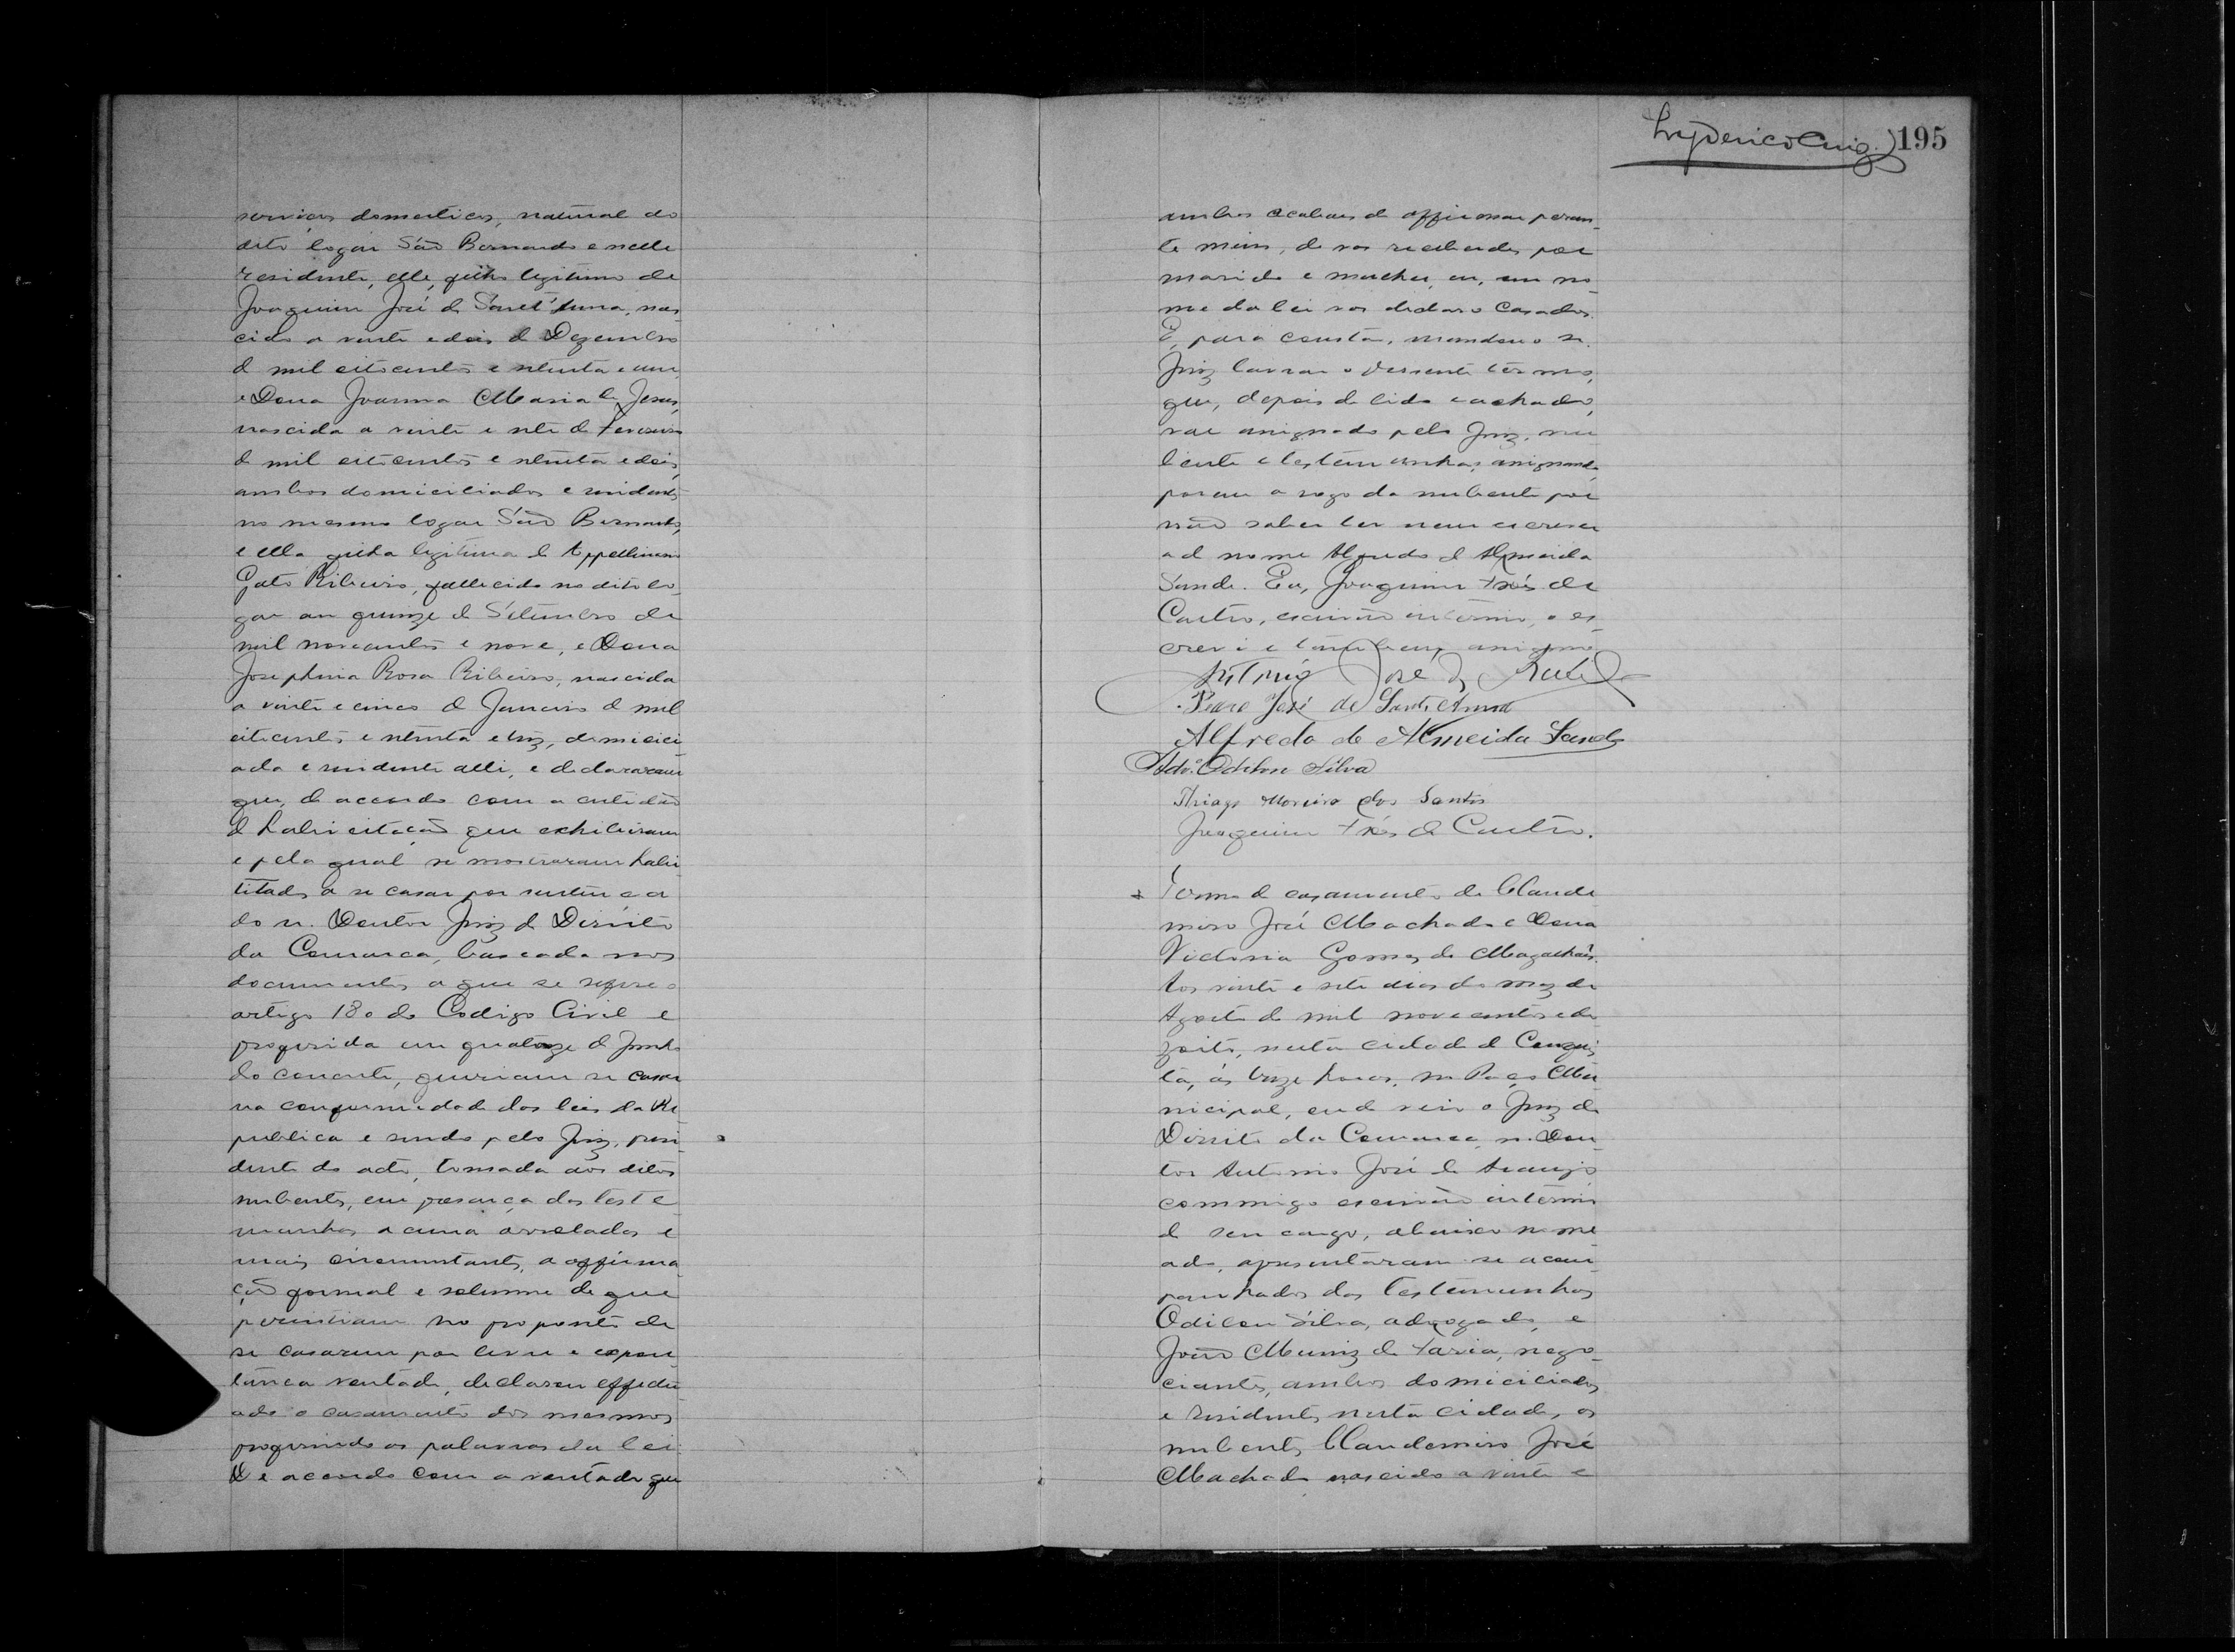 serviços domesticos, natural do
dito logar São Bernardo e nelle
residente, elle, filho legitimo de
Joaquim José de Sant'Anna, nas
cido a vinte e dois de Dezembro
de mil oitocentos e setenta e um,
e Dona Joanna Maria de Jesus,
nascida a vinte e sete de Fevereiro
de mil oitocentos e setenta e dois,
ambos domiciliados e residentes
no mesmo logar São Bernardo,
e ella filha legitima de
Ribeiro, fallecido no dito lo-
gar em quinze de Setembro de
mil novecentos e nove, e Dona
Josephina Rosa Ribeiro, nascida
a vinte e cinco de Janeiro de mil
oitocentos e setenta e trez, domicili
ada e residente alli, e declararam
que, de accordo com a certidão
de habilitação que exhibiram
e pela qual se mostraram habi
litados a se casar por sentença
do sr. Doutor Juiz de Direito
da Comarca, baseada nos
documentos a que se refere o
artigo 180 do Codigo Civil e
proferida em quatorze de Junho
do corrente, queriam se casar
na conformidade das leis da Re
publica e sendo pelo Juiz, presi
dente do acto, tomada aos ditos
nubentes, em presença das teste
munhas acima arroladas e
mais circumstantes, a affirma
ção formal e solemne de que
persistiam no proposito de
se casarem por livre e expon
tanea vontade, declarou effectu
ado o casamento dos mesmos
proferindo as palavras da lei.
De accordo com a vontade que
Lyderico Cruz 195
ambos acabaes de affirmar peran-
te mim, de vos receberdes por
marido e mulher, eu, em no-
me da lei vos declaro casados.
E, para constar, mandou o sr.
Juiz lavrar o presente termo,
que, depois de lido e achado,
vae assignado pelo Juiz, nu
bente e testemunhas, assignando
porem a rogo da nubente por
não saber ler nem escrever
o de nome Alfredo de Almeida
Sande. Eu, Joaquim Fróes de
Castro, escrivão interino, o es-
crevi e tambem assigno.
Antonio José de Araujo
Pedro José de Sant'Anna
Alfredo de Almeida Sande
Adv.º Odilon Silva
Thiago Moreira dos Santos
Joaquim Fróes de Castro.
Termo de casamento de Claude
miro José Machado e Dona
Victoria Gomes de Magalhães.
Aos vinte e sete dias do mez de
Agosto de mil novecentos e de
zoito, nesta cidade de Conquis
ta, ás treze horas, no Paço Mu
nicipal, onde veio o Juiz de
Direito da Comarca, sr. Dou
tor Antonio José de Araujo
commigo escrivão interino
de seu cargo, abaixo nome
ado, apresentaram-se acom
panhados das testemunhas
Odilon Silva, advogado, e
João Muniz de Faria, nego-
ciante, ambos domiciliados
e residentes nesta cidade, os
nubentes Claudemiro José
Machado nascido a vinte e